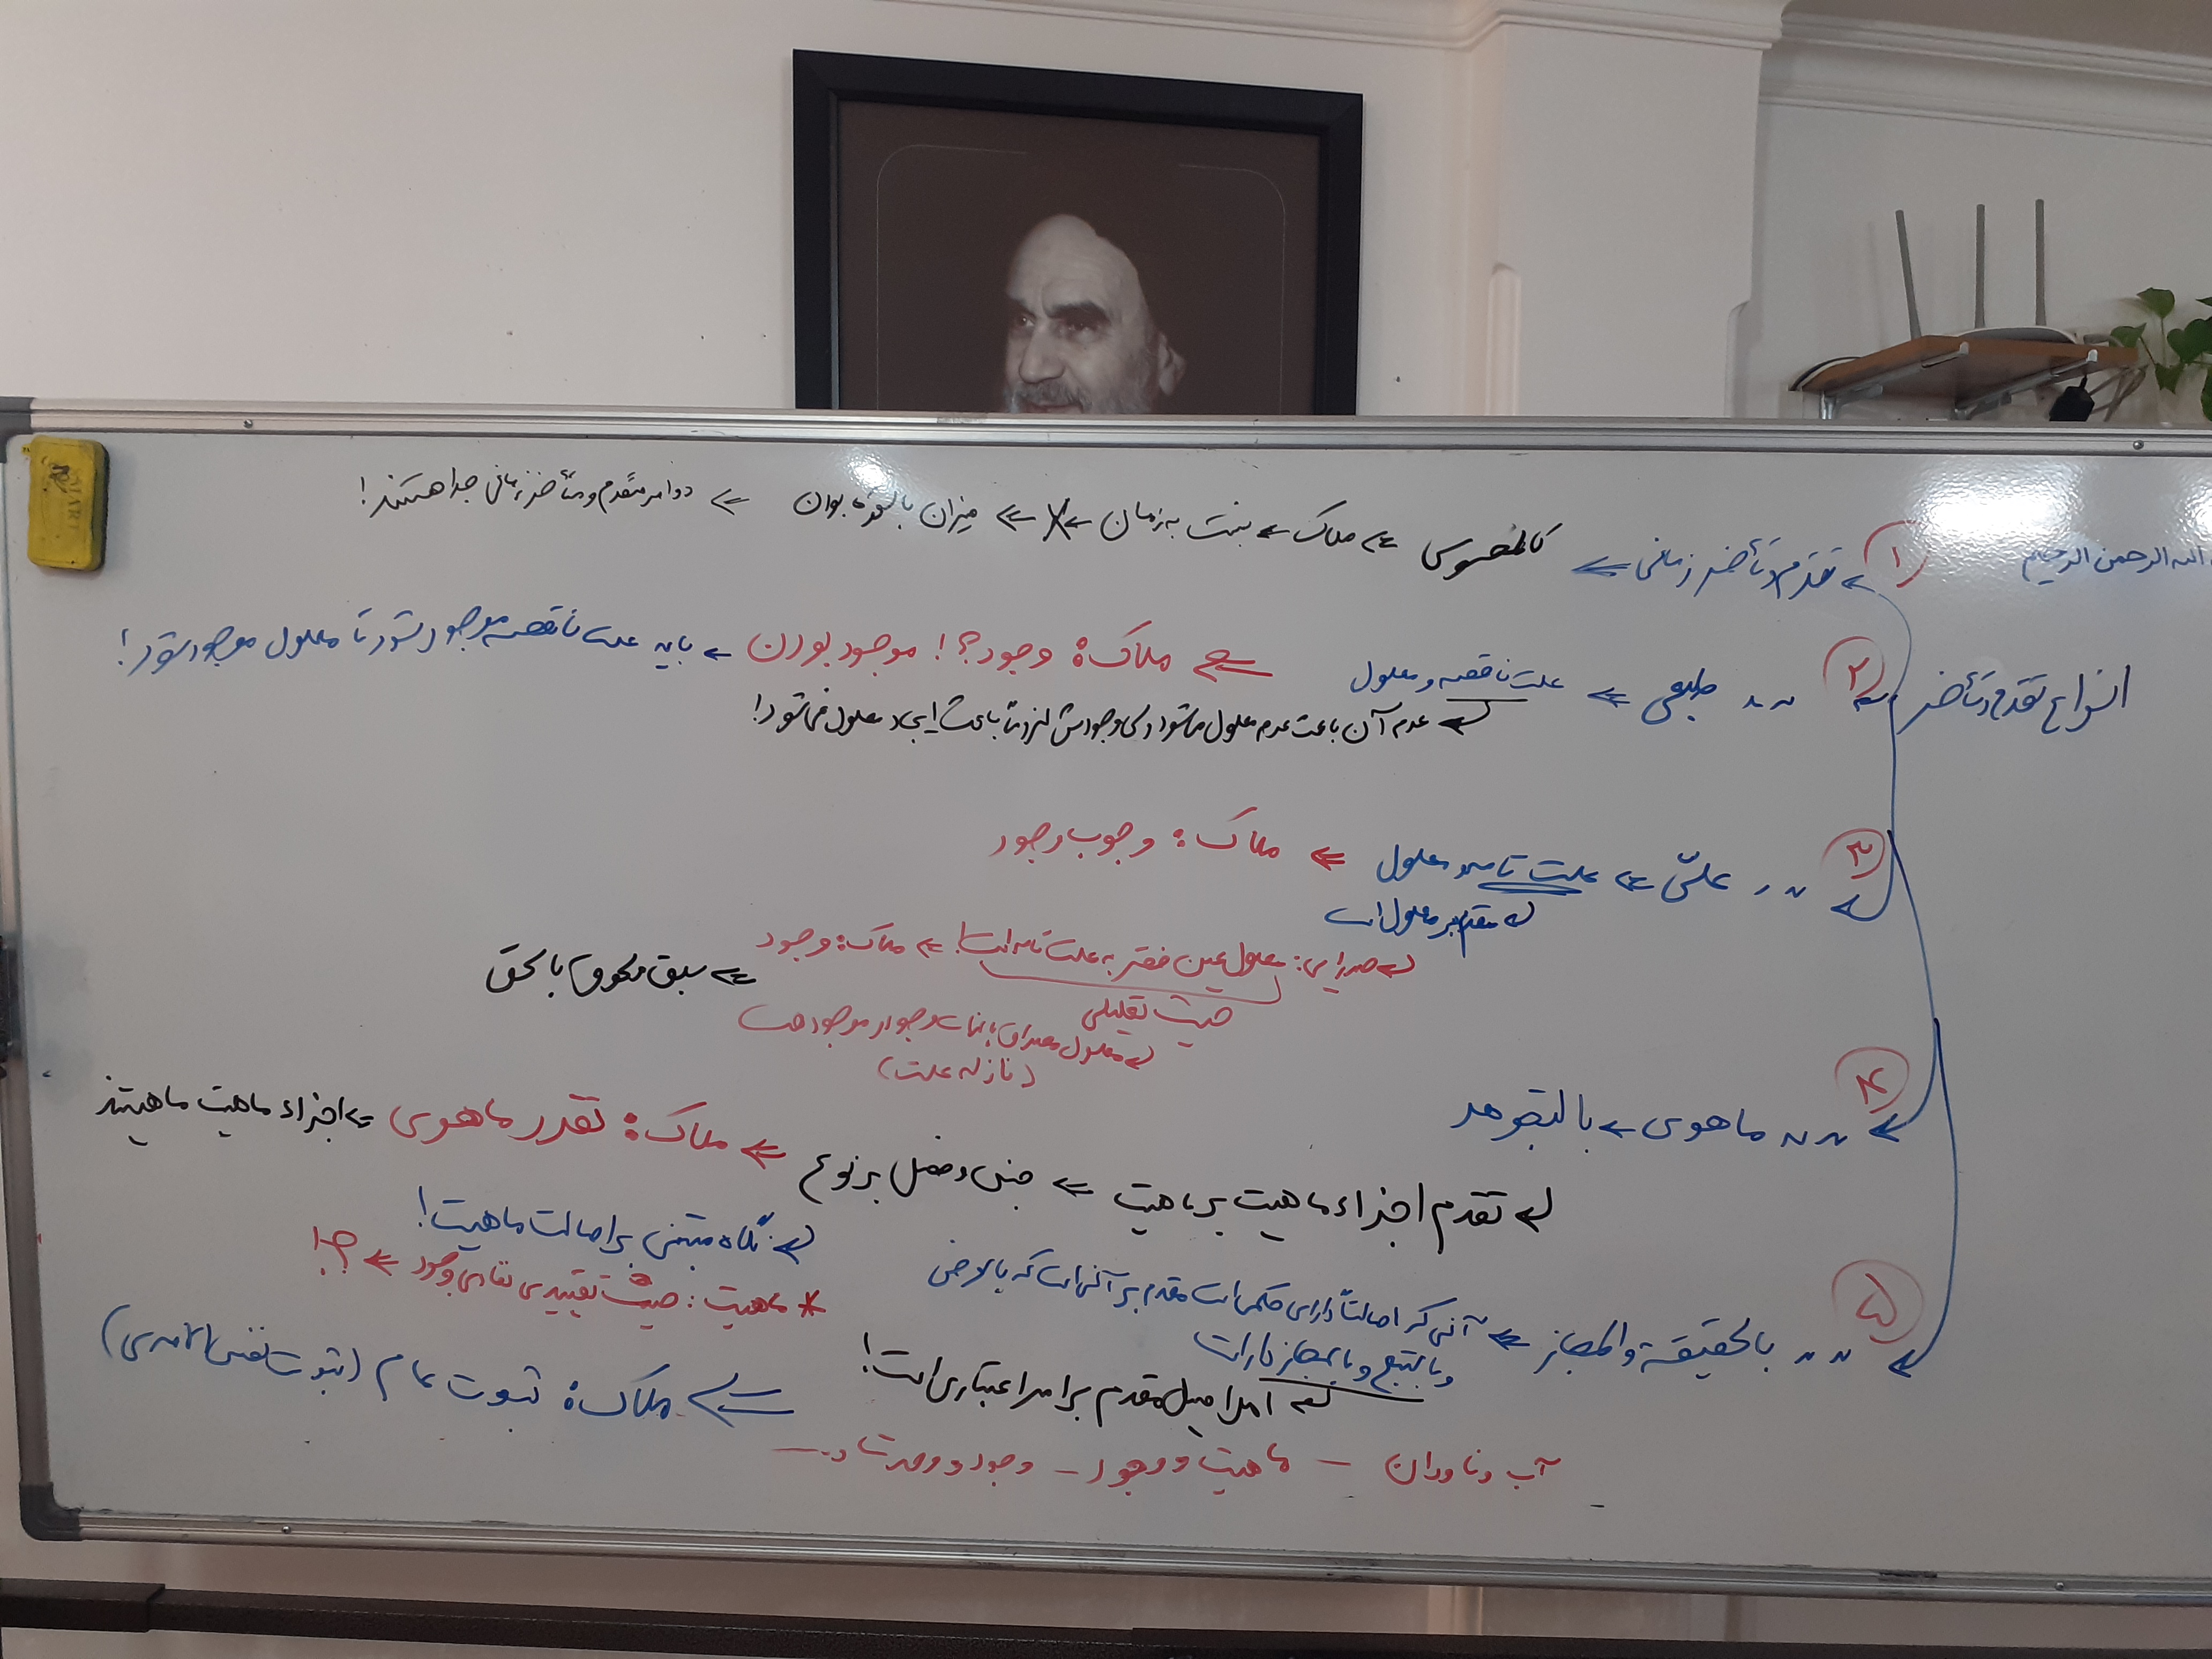 الله الرحمن الرحیم
انواع تقدم و تأخر
۱ تقدم و تأخر زمانی ← ملاک ← نسبت به زمان ← ← میزان بالقوه بودن ← دو امر متقدم و متأخر زمانی جدا هستند!
۲ 〃 〃 طبعی ← علت ناقصه و معلول ← ملاک: وجود؟! موجود بودن ← باید علت ناقصه موجود شود تا معلول موجود شود!
عدم آن باعث عدم معلول می‌شود ولی وجودش لزوماً باعث ایجاد معلول نمی‌شود!
۳ 〃 〃 علّی ← علت تامه و معلول ← ملاک: وجوب وجود
مقدم بر معلول است
صدرایی: معلول عین فقر به علت تامه است! ← ملاک: وجود ← سبق بالحق
حیث تعلیلی
معلول مصداق بالذات وجود و موجود است
(نازله علت)
۴ 〃 〃 ماهوی ← بالتجوهر
تقدم اجزاء ماهیت بر ماهیت ← جنس و فصل بر نوع ← ملاک: تقرر ماهوی ← اجزاء ماهیت ماهیتند
نگاه مبتنی بر اصالت ماهیت!
* ماهیت: حیث تقییدی نفادی وجود ← چرا؟!
۵ 〃 〃 بالحقیقة والمجاز ← آنی که اصالتاً دارای حکمی است مقدم بر آنی است که بالعرض
و بالتبع و بالمجاز داراست
امر اصیل مقدم بر امر اعتباری است! ← ملاک: ثبوت عام (ثبوت نفس الامری)
آب و ناودان - ماهیت و وجود - وجود و وحدت شاد...